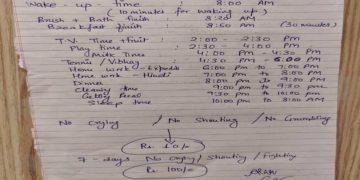 Wake-up time 8:00 AM
(10 minutes for waking up)
Brush + Bath finish 8:20 AM
Breakfast finish 8:50 AM (30 minutes)
T.V. Time 2:00 - 2:30 PM
Play time 2:30 - 4:00 PM
Milk Time 4:00 PM - 4:30 PM
Tennis / 4:30 PM - 6:00 PM
Home work - 6:00 PM to 7:00 PM
Home work - Hindi 7:00 PM to 8:00 PM
Dinner 8:00 PM to 9:00 PM
Cleaning time 9:00 PM to 9:30 PM
Getting Ready 9:30 PM to 10:00 PM
Sleep time 10:00 PM to 8:00 AM
No Crying / No Shouting / No Grumbling
Rs 10/-
7 - days No Crying / Shouting / Fighting
Rs 100/-